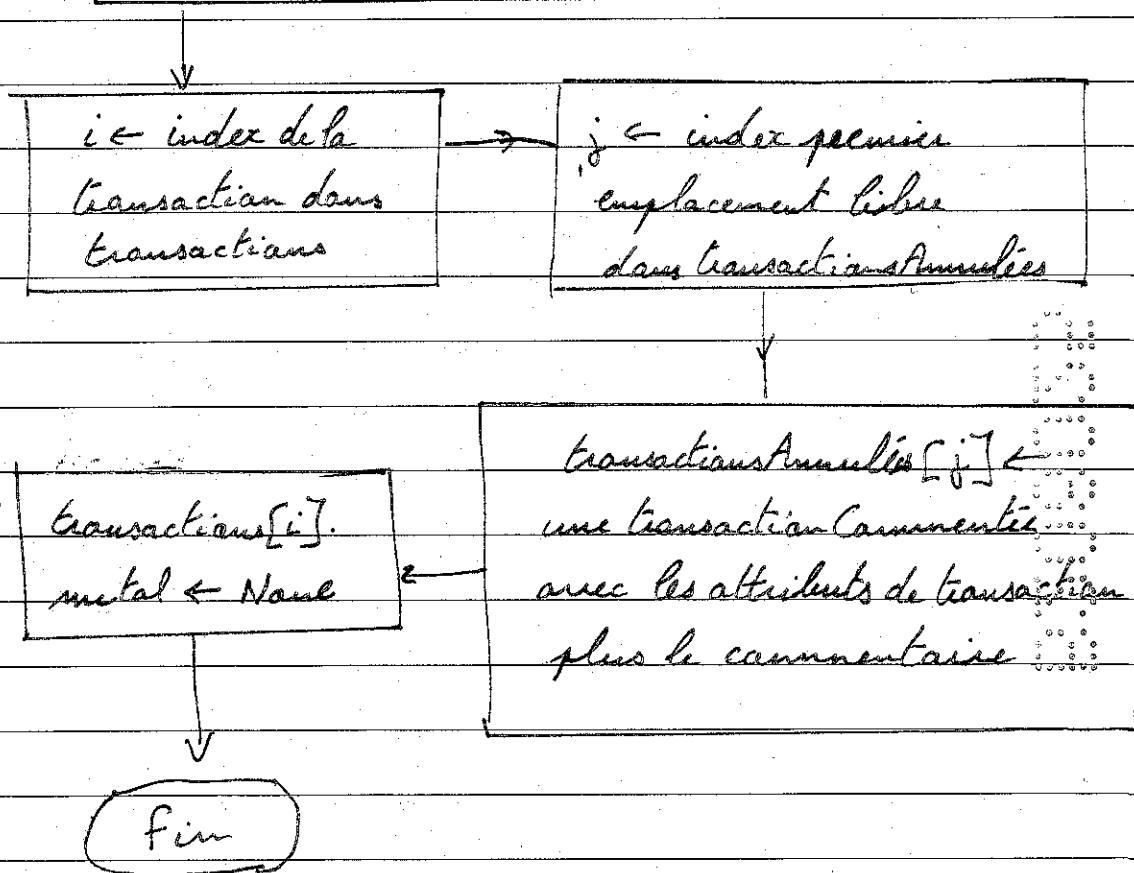 i ← index de la
transaction dans
transactions
j ← index premier
emplacement libre
dans transactionsAnnulées
transactionsAnnulées[j] ←
une transactionCommentée
avec les attributs de transaction
plus le commentaire
transactions[i].
metal ← None
Fin